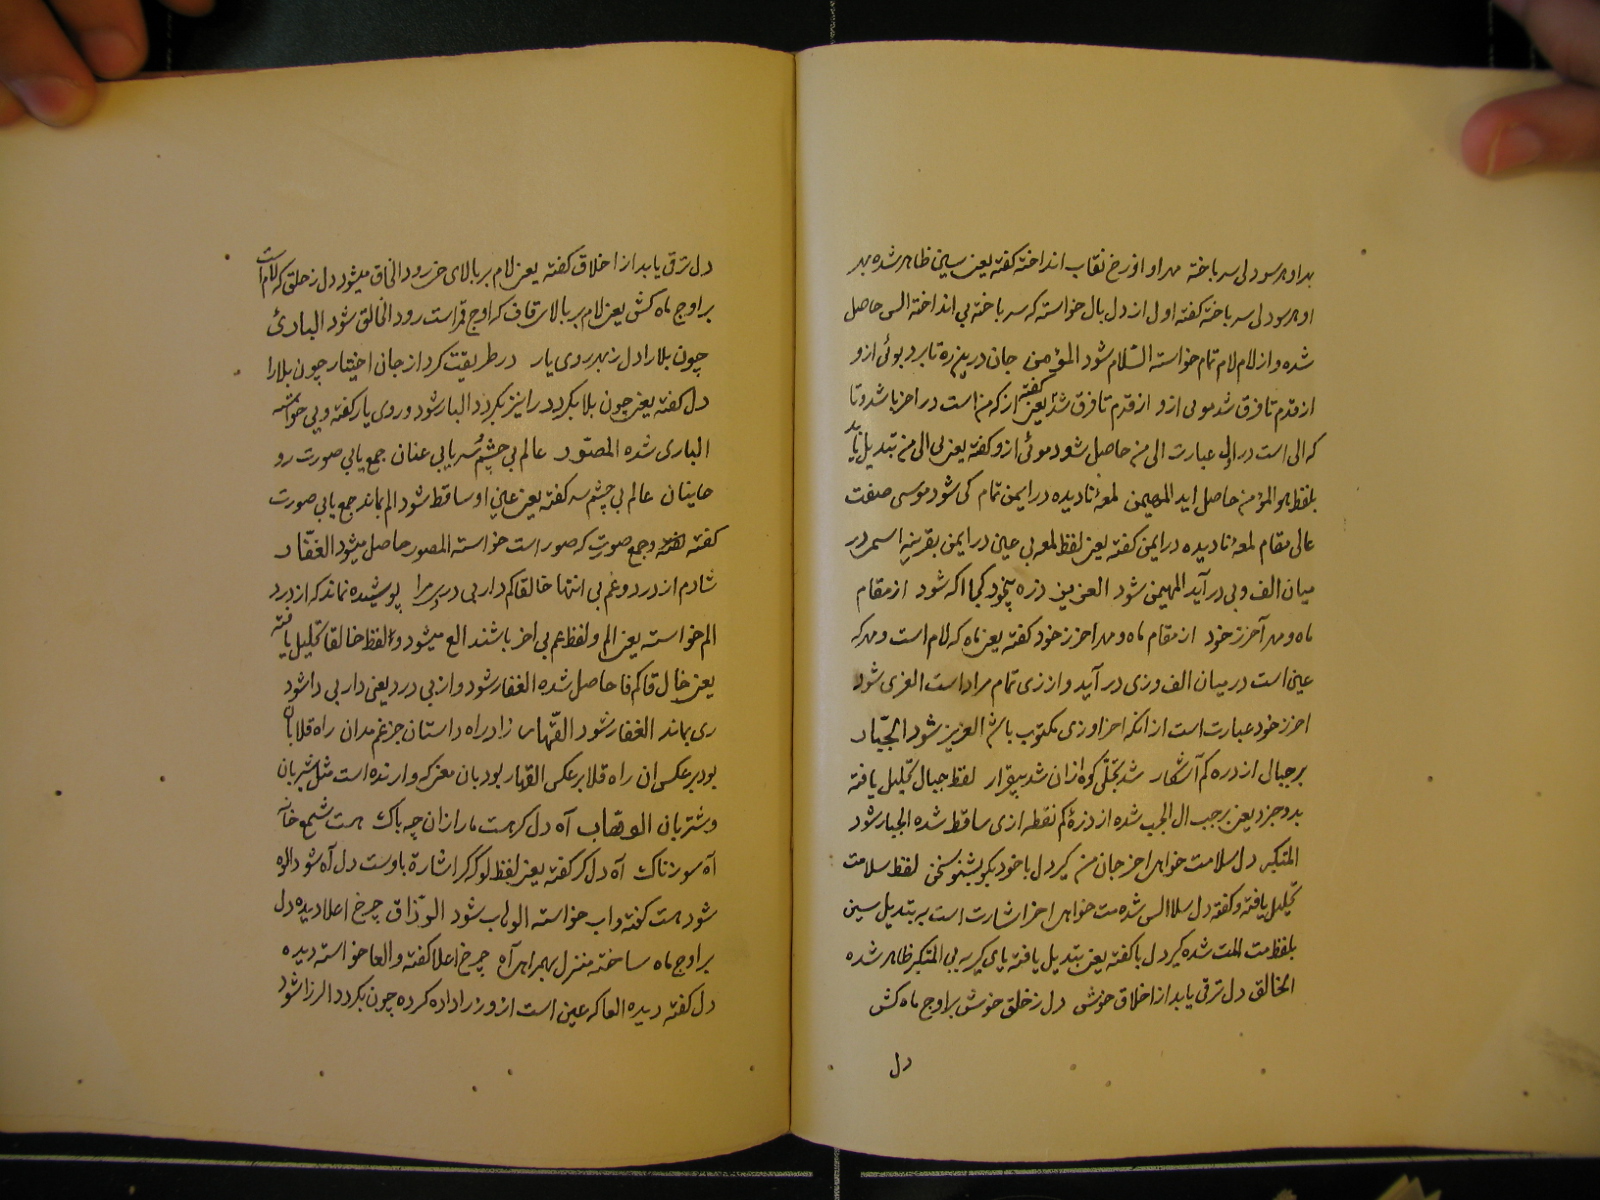 بهر او هر سو دلی سر باخته مهر او از رخ نقاب انداخته کفته یعنی سین ظاهر شده بهر
او هر سو دلی سر باخته کفته اول از دل بال خواسته که سر باخته بی انداخته الس حاصل
شده و از لام لام تمام خواسته السلام شود المؤمن جان درین ره تا برد بوئی ازو
از قدم تا فرق شد موئی ازو از قدم تا فرق شد کفته یعنی از که من است در اخر باشد و تا
که الی است در اول عبارت الی من حاصل شود موئی ازو کفته یعنی بی الی من تبدیل یابد
بلفظ هو المؤمن حاصل اید المهیمن لمعهٔ نادیده در ایمن تمام کی شود موسی صفت
عالی مقام لمعهٔ نادیده در ایمن کفته یعنی لفظ لمعه بی عین در ایمن بقرینهٔ اسم در
میان الف و بی در آید المهیمن شود العزیز ذره بیخود کجا اکه شود از مقام
ماه و مهر آخرز خود از مقام ماه و مهر اخرز خود کفته یعنی ماه که لام است و مهر که
عین است در میان الف و زی در آید و از زی تمام مراد است العزی شود
اخرز خود عبارت است از انکه اخر او زی مکتوب باشد العزیز شود الجبار
بر جبال از ذره کم آشکار شد تجلی کوه ازان شد بیقرار لفظ جبال تحلیل یافته
بدو جزء یعنی بر جب ال الجب شده از ذرهٔ کم نقطه ازی ساقط شده الجبار شود
المتکبر دل سلامت خواهر اخر جان من کیر دل با خود بکو بشنو سخن لفظ سلامت
تحلیل یافته و کفته دل سلا الس شده مت خواهر اخر اشارت است به تبدیل سین
بلفظ مت المت شده کیر دل با کفته یعنی تبدیل یافته یای کیر به بی المتکبر ظاهر شده
الخالق دل ترقی یابد از اخلاق خوش دل ز خلق خوش بر اوج ماه کش
دل
دل ترقی یابد از اخلاق کفته یعنی لام بر بالای خی رود الخاق میشود دل ز خلق که لام است
بر اوج ماه کش یعنی لام بر بالای قاف که اوج قمر است رود الخالق شود البادئ
چون بلا را دل ز بهر روی یار در طریقت کرد از جان اختیار چون بلا را
دل کفته یعنی چون بلا بکردد را نیز بکردد البار شود و روی یار کفته و یی خواسته
الباری شده المصور عالم بی چشم سر یابی عنان جمع یابی صورت رو
حاینان عالم بی چشم سه کفته یعنی عین او ساقط شود الم بماند جمع یابی صورت
کفته وجمع صورت که صور است خواسته المصور حاصل میشود الغفار
شادم از درد و غم بی انتها خالقا کم دار بی دردی مرا پوشیده نماند که از درد
الم خواسته یعنی الم و لفظ غم بی اخر باشند الغ میشود و لفظ خالقا تحلیل یافته
یعنی خال قا کم فا حاصل شده الغفار شود و از بی دردی یعنی دار بی دا شود
ری بماند الغفار شود القهار زاد راه داستان جز غم مدان راه قلابان
بود بر عکس ان راه قلا بر عکس القهار بود بان معنی که وارنده است مثل شیربان
و شتربان الوهاب آه دل کر هست ما را زان چه باک هست شمع خانه
آه سوزناک آه دل کر کفته یعنی لفظ لو که کر اشارة باوست دل آه شود الوه
شود هست کفته و اب خواسته الوهاب شود الرزاق چرخ اعلا دیده دل
بر اوج ماه ساخته منزل بهمراهی آه چرخ اعلا کفته و العا خواسته دیده
دل کفته دیده العا که عین است از و رز اراده کرده چون بکردد الرزا شود